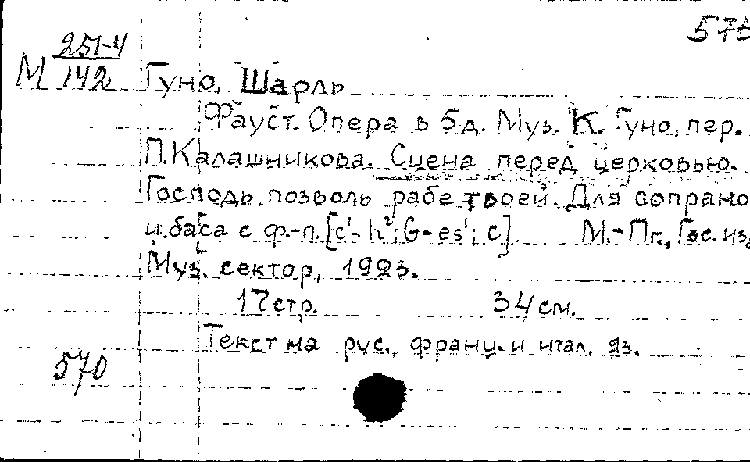 573
251-4
М 142 Гуно, Шарль
Фауст. Опера в 5 д. Муз. К. Гуно, пер.
П. Калашникова. Сцена перед церковью.
Господь, позволь рабе твоей. Для сопрано
и баса с ф.-п. [c¹-h²; G-es¹; c] М.-Пг., Гос. из
Муз. сектор, 1923.
17 стр. 34 см.
Текст на рус., франц. и итал. яз.
570